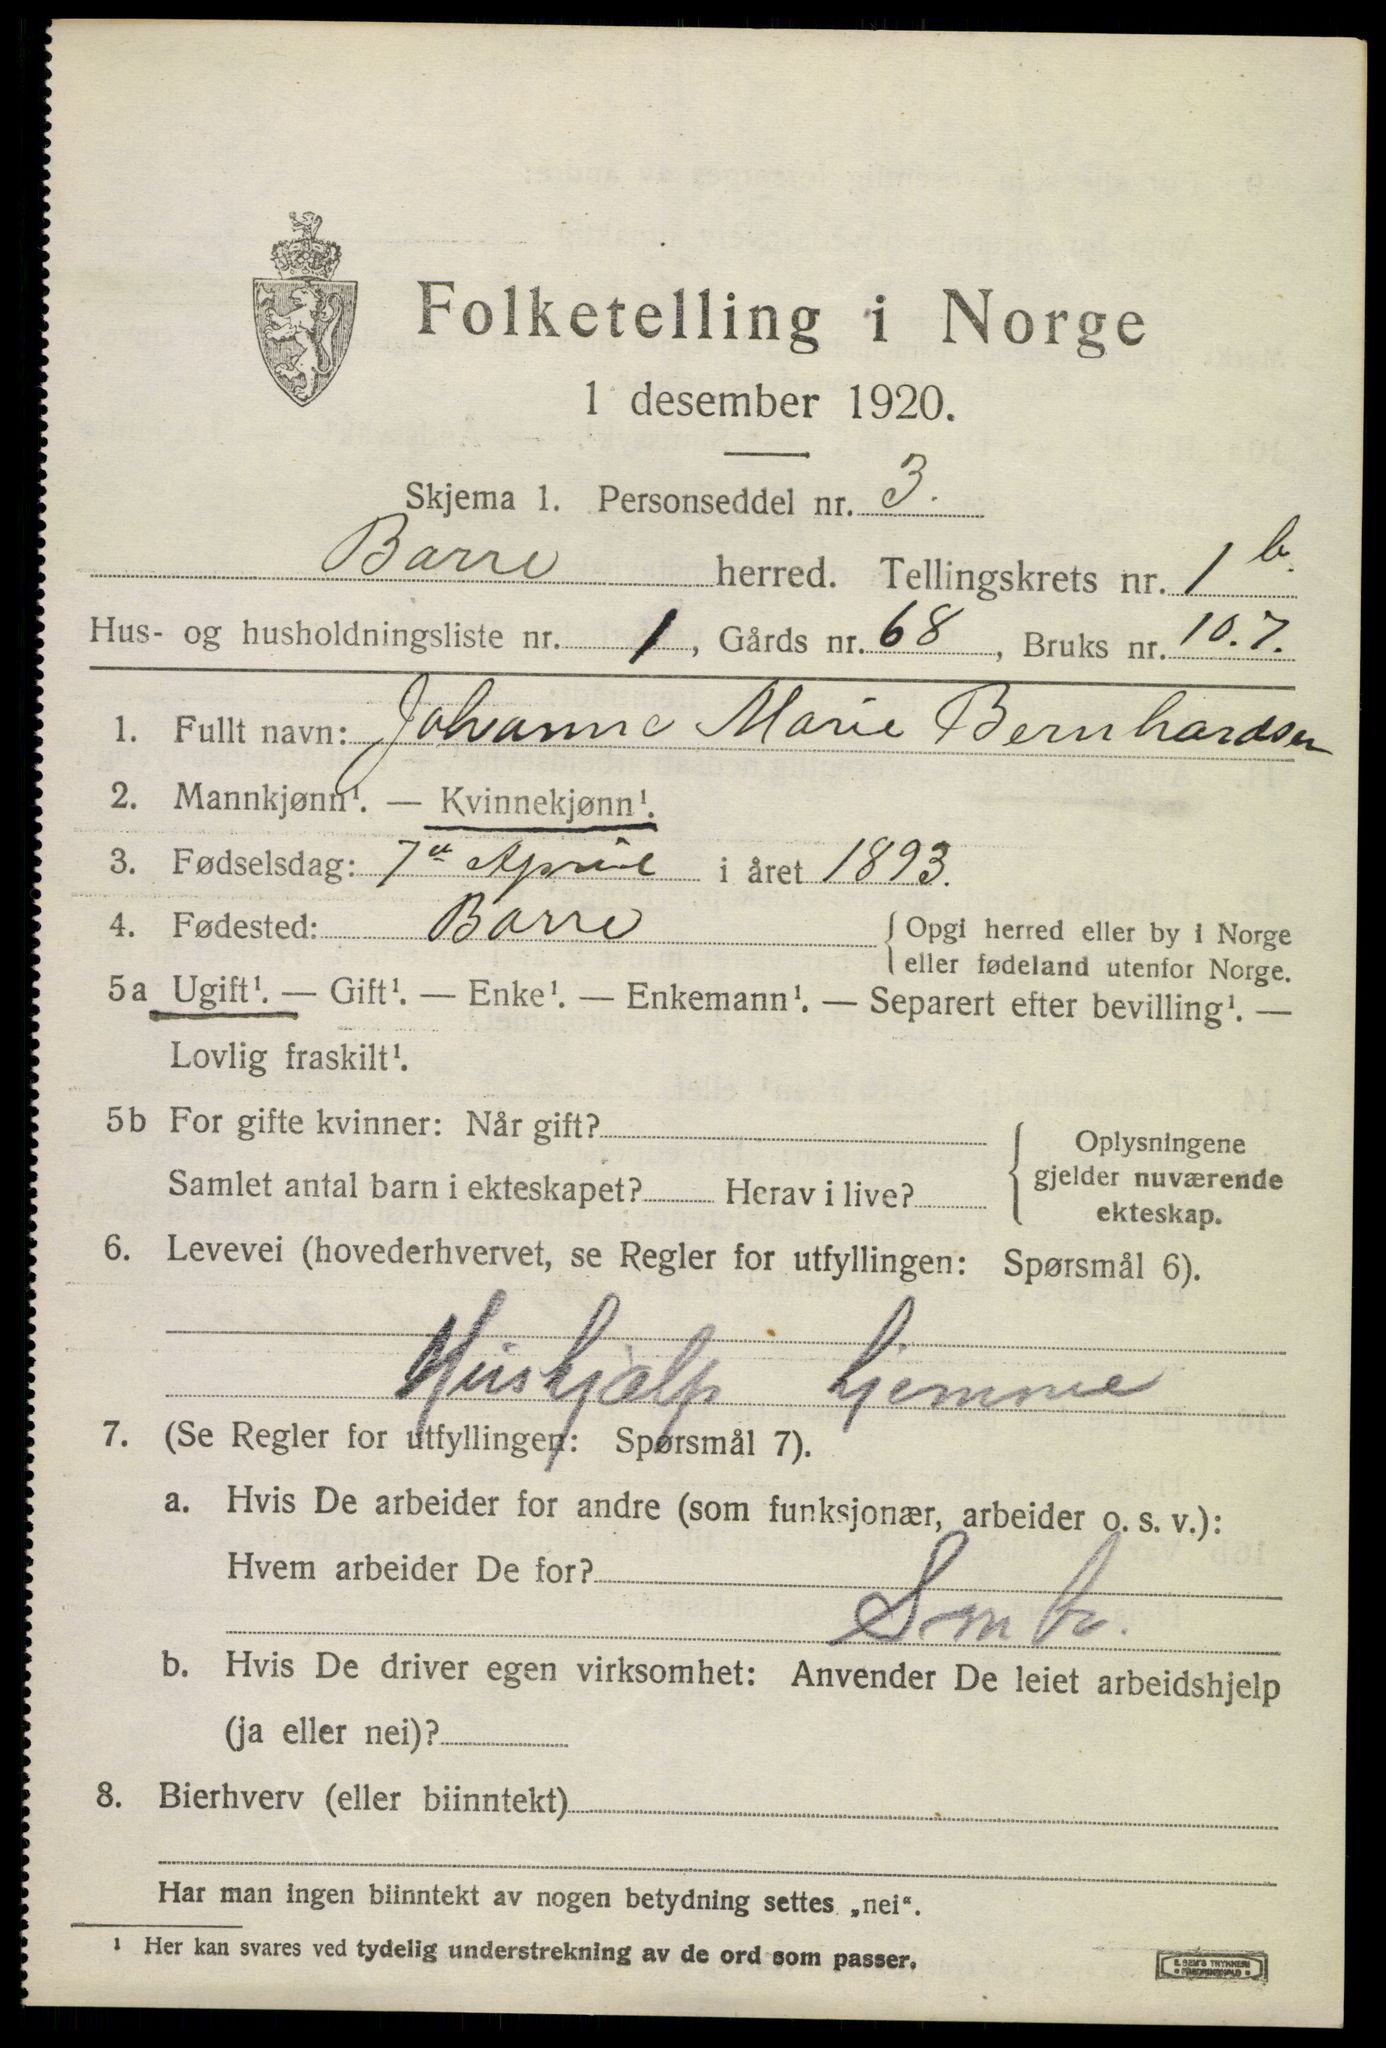 Folketelling i Norge
1 desember 1920.
Skjema 1. Personseddel nr. 3.
Barre herred. Tellingskrets nr. 1 b.
Hus- og husholdningsliste nr. 1, Gårds nr. 68, Bruks nr. 10.7.
1. Fullt navn: Johanne Marie Bernhardsen
2. Mannkjønn¹. — Kvinnekjønn¹.
3. Fødselsdag: 7de April i året 1893.
4. Fødested: Barre { Opgi herred eller by i Norge
eller fødeland utenfor Norge.
5a Ugift¹. — Gift¹. — Enke¹. — Enkemann¹. — Separert efter bevilling¹. —
Lovlig fraskilt¹.
5b For gifte kvinner: Når gift?
Samlet antal barn i ekteskapet? Herav i live?
{ Oplysningene
gjelder nuværende
ekteskap.
6. Levevei (hovederhvervet, se Regler for utfyllingen: Spørsmål 6).
Hushjælp hjemme
7. (Se Regler for utfyllingen: Spørsmål 7).
a. Hvis De arbeider for andre (som funksjonær, arbeider o. s. v.):
Hvem arbeider De for?
b. Hvis De driver egen virksomhet: Anvender De leiet arbeidshjelp
(ja eller nei)?
8. Bierhverv (eller biinntekt)
Har man ingen biinntekt av nogen betydning settes „nei“.
¹ Her kan svares ved tydelig understrekning av de ord som passer.